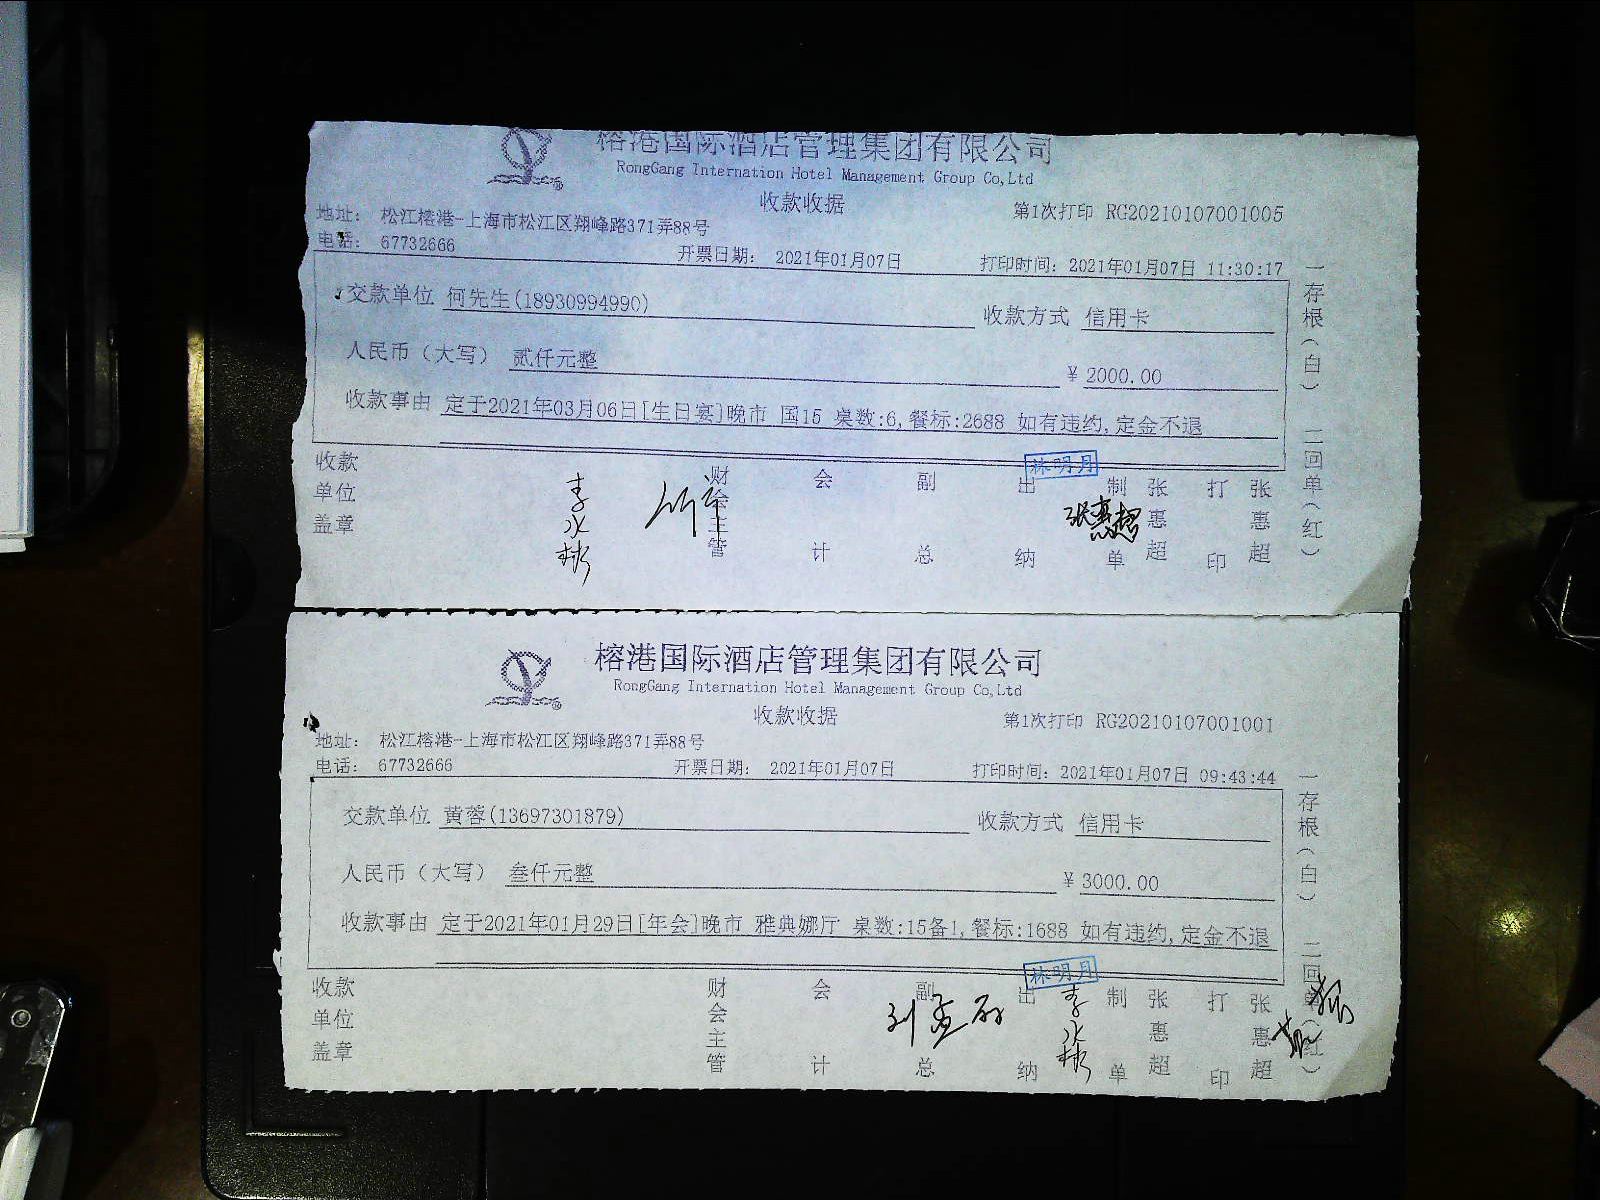 榕港国际酒店管理集团有限公司
RongGang Internation Hotel Management Group Co,Ltd
收款收据
第1次打印 RG20210107001005
地址： 松江榕港-上海市松江区翔峰路371弄88号
电话： 67732666
开票日期： 2021年01月07日 打印时间：2021年01月07日 11:30:17
交款单位 何先生(18930994990) 收款方式 信用卡
人民币（大写） 贰仟元整 ¥ 2000.00
收款事由 定于2021年03月06日[生日宴]晚市 国15 桌数:6,餐标:2688 如有违约,定金不退
一存根（白） 二回单（红）
收款单位盖章 财会主管 会计 副总 出纳 制单 张惠超 打印 张惠超
林明月
李水彬
张惠超
榕港国际酒店管理集团有限公司
RongGang Internation Hotel Management Group Co,Ltd
收款收据
第1次打印 RG20210107001001
地址： 松江榕港-上海市松江区翔峰路371弄88号
电话： 67732666
开票日期： 2021年01月07日 打印时间：2021年01月07日 09:43:44
交款单位 黄蓉(13697301879) 收款方式 信用卡
人民币（大写） 叁仟元整 ¥ 3000.00
收款事由 定于2021年01月29日[年会]晚市 雅典娜厅 桌数:15备1,餐标:1688 如有违约,定金不退
一存根（白） 二回单（红）
收款单位盖章 财会主管 会计 副总 出纳 制单 张惠超 打印 张惠超
林明月
李水彬